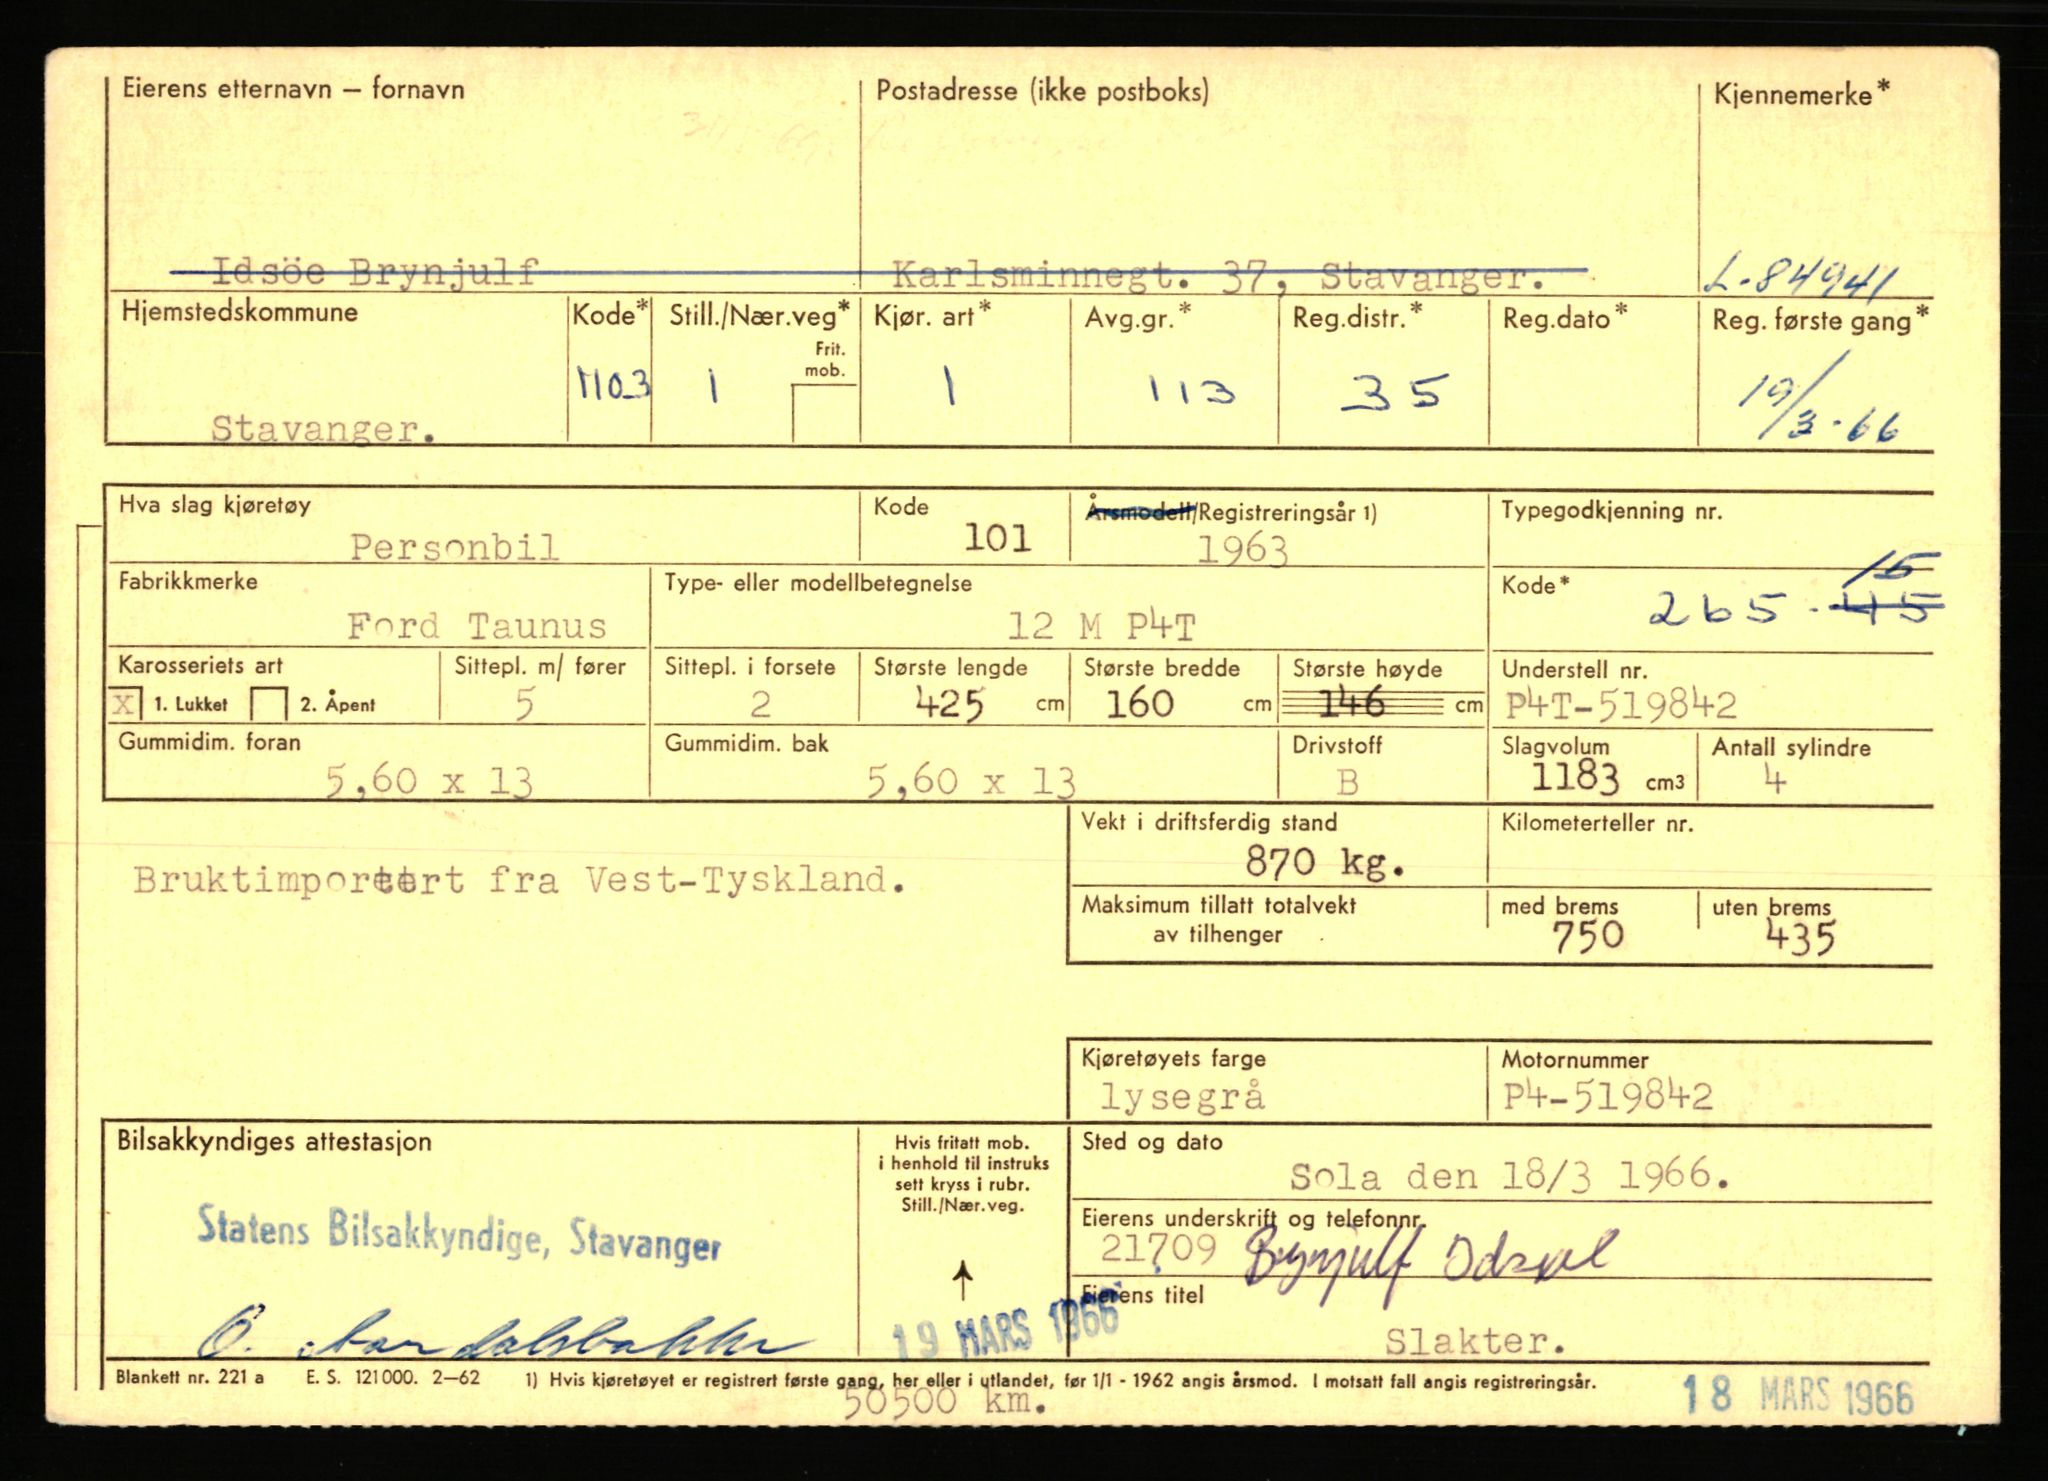 Eierens etternavn – fornavn Postadresse (ikke postboks) Kjennemerke*
Idsöe Brynjulf Karlsminnegt. 37, Stavanger. L-84941
Hjemstedskommune Kode* Still./Nær.veg* Kjør. art* Avg.gr.* Reg.distr.* Reg.dato* Reg. første gang*
Frit.
mob.
1103 1 1 113 35 19/3-66
Stavanger.
Hva slag kjøretøy Kode Årsmodell/Registreringsår 1) Typegodkjenning nr.
Personbil 101 1963
Fabrikkmerke Type- eller modellbetegnelse Kode* 15
Ford Taunus 12 M P4T 265-45
Karosseriets art Sittepl. m/ fører Sittepl. i forsete Største lengde Største bredde Største høyde Understell nr.
X 1. Lukket 2. Åpent 5 2 425 cm 160 cm 146 cm P4T-519842
Gummidim. foran Gummidim. bak Drivstoff Slagvolum Antall sylindre
5,60 x 13 5,60 x 13 B 1183 cm3 4
Vekt i driftsferdig stand Kilometerteller nr.
870 kg.
Bruktimportert fra Vest-Tyskland.
Maksimum tillatt totalvekt med brems uten brems
av tilhenger 750 435
Kjøretøyets farge Motornummer
lysegrå P4-519842
Bilsakkyndiges attestasjon Hvis fritatt mob. Sted og dato
i henhold til instruks
sett kryss i rubr. Sola den 18/3 1966.
Still./Nær.veg.
Statens Bilsakkyndige, Stavanger Eierens underskrift og telefonnr.
21709 Brynjulf Idsøe
Eierens titel
19 MARS 1966
Slakter.
Blankett nr. 221 a E. S. 121000. 2–62 1) Hvis kjøretøyet er registrert første gang, her eller i utlandet, før 1/1 - 1962 angis årsmod. I motsatt fall angis registreringsår.
50500 km. 18 MARS 1966